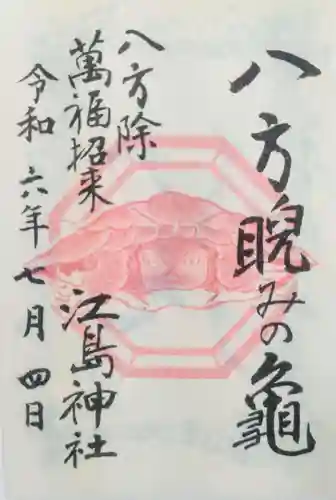 八方睨みの龜
八方除
萬福招来
令和六年七月四日
江島神社